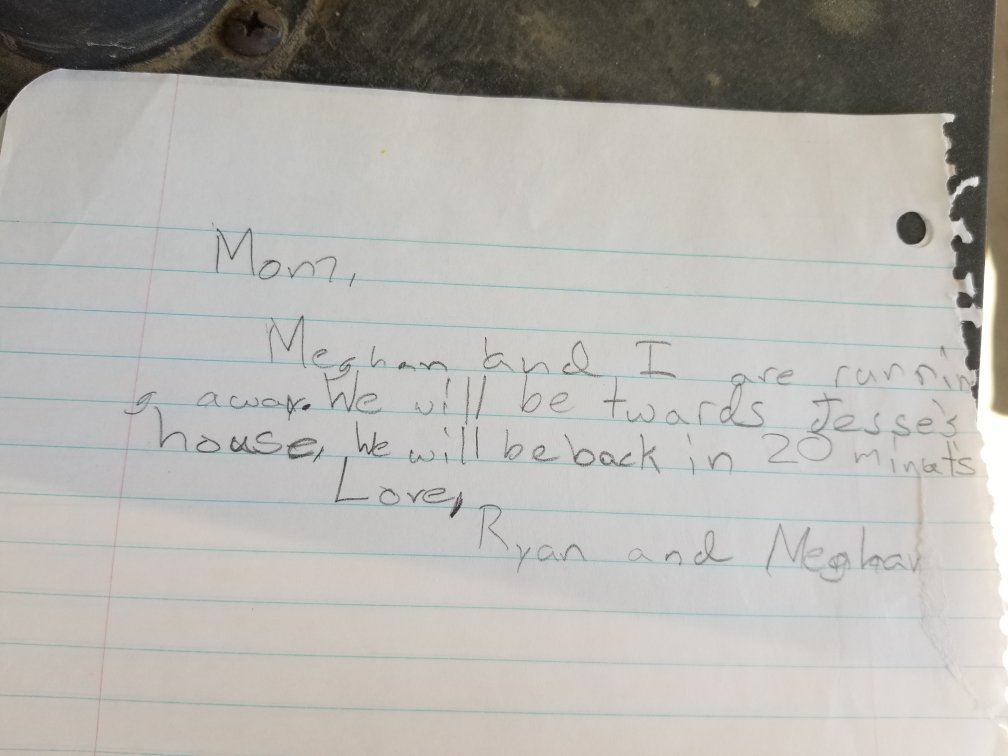 Mom,
Meghan and I are runnin
g away. We will be twards Jesse's
house, We will be back in 20 minuts
Love,
Ryan and Meghan